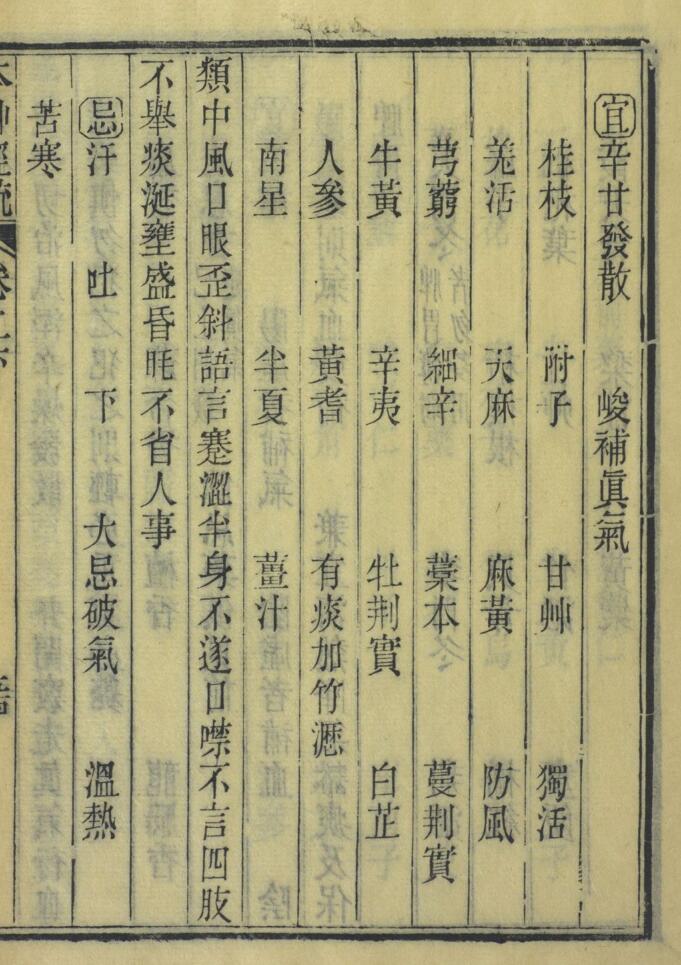 宜辛甘發散　峻補眞氣
桂枝　附子　甘艸　獨活
羗活　天麻　麻黃　防風
芎藭　細辛　藁本　蔓荆實
牛黃　辛夷　牡荆實　白芷
人參　黃耆　有痰加竹瀝
南星　半夏　薑汁
類中風口眼歪斜語言蹇澀半身不遂口噤不言四肢
不舉痰涎壅盛昏眊不省人事
忌汗　吐　下　大忌破氣　溫熱
苦寒